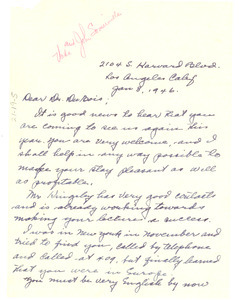 2104 S. Harvard Blvd.
Los Angeles Calif
Jan 8, 1946.
Dear Dr. Du Bois:
It is good news to hear that you
are coming to see us again this
year. You are very welcome, and I
shall help in any way possible to
make your stay pleasant as well
as profitable.
Mr. has very good contacts
and is already working towards
making your lectures a success.
I was in New York in November and
tried to find you, called by telephone
and called at 409, but finally learned
that you were in Europe.
You must be very English by now